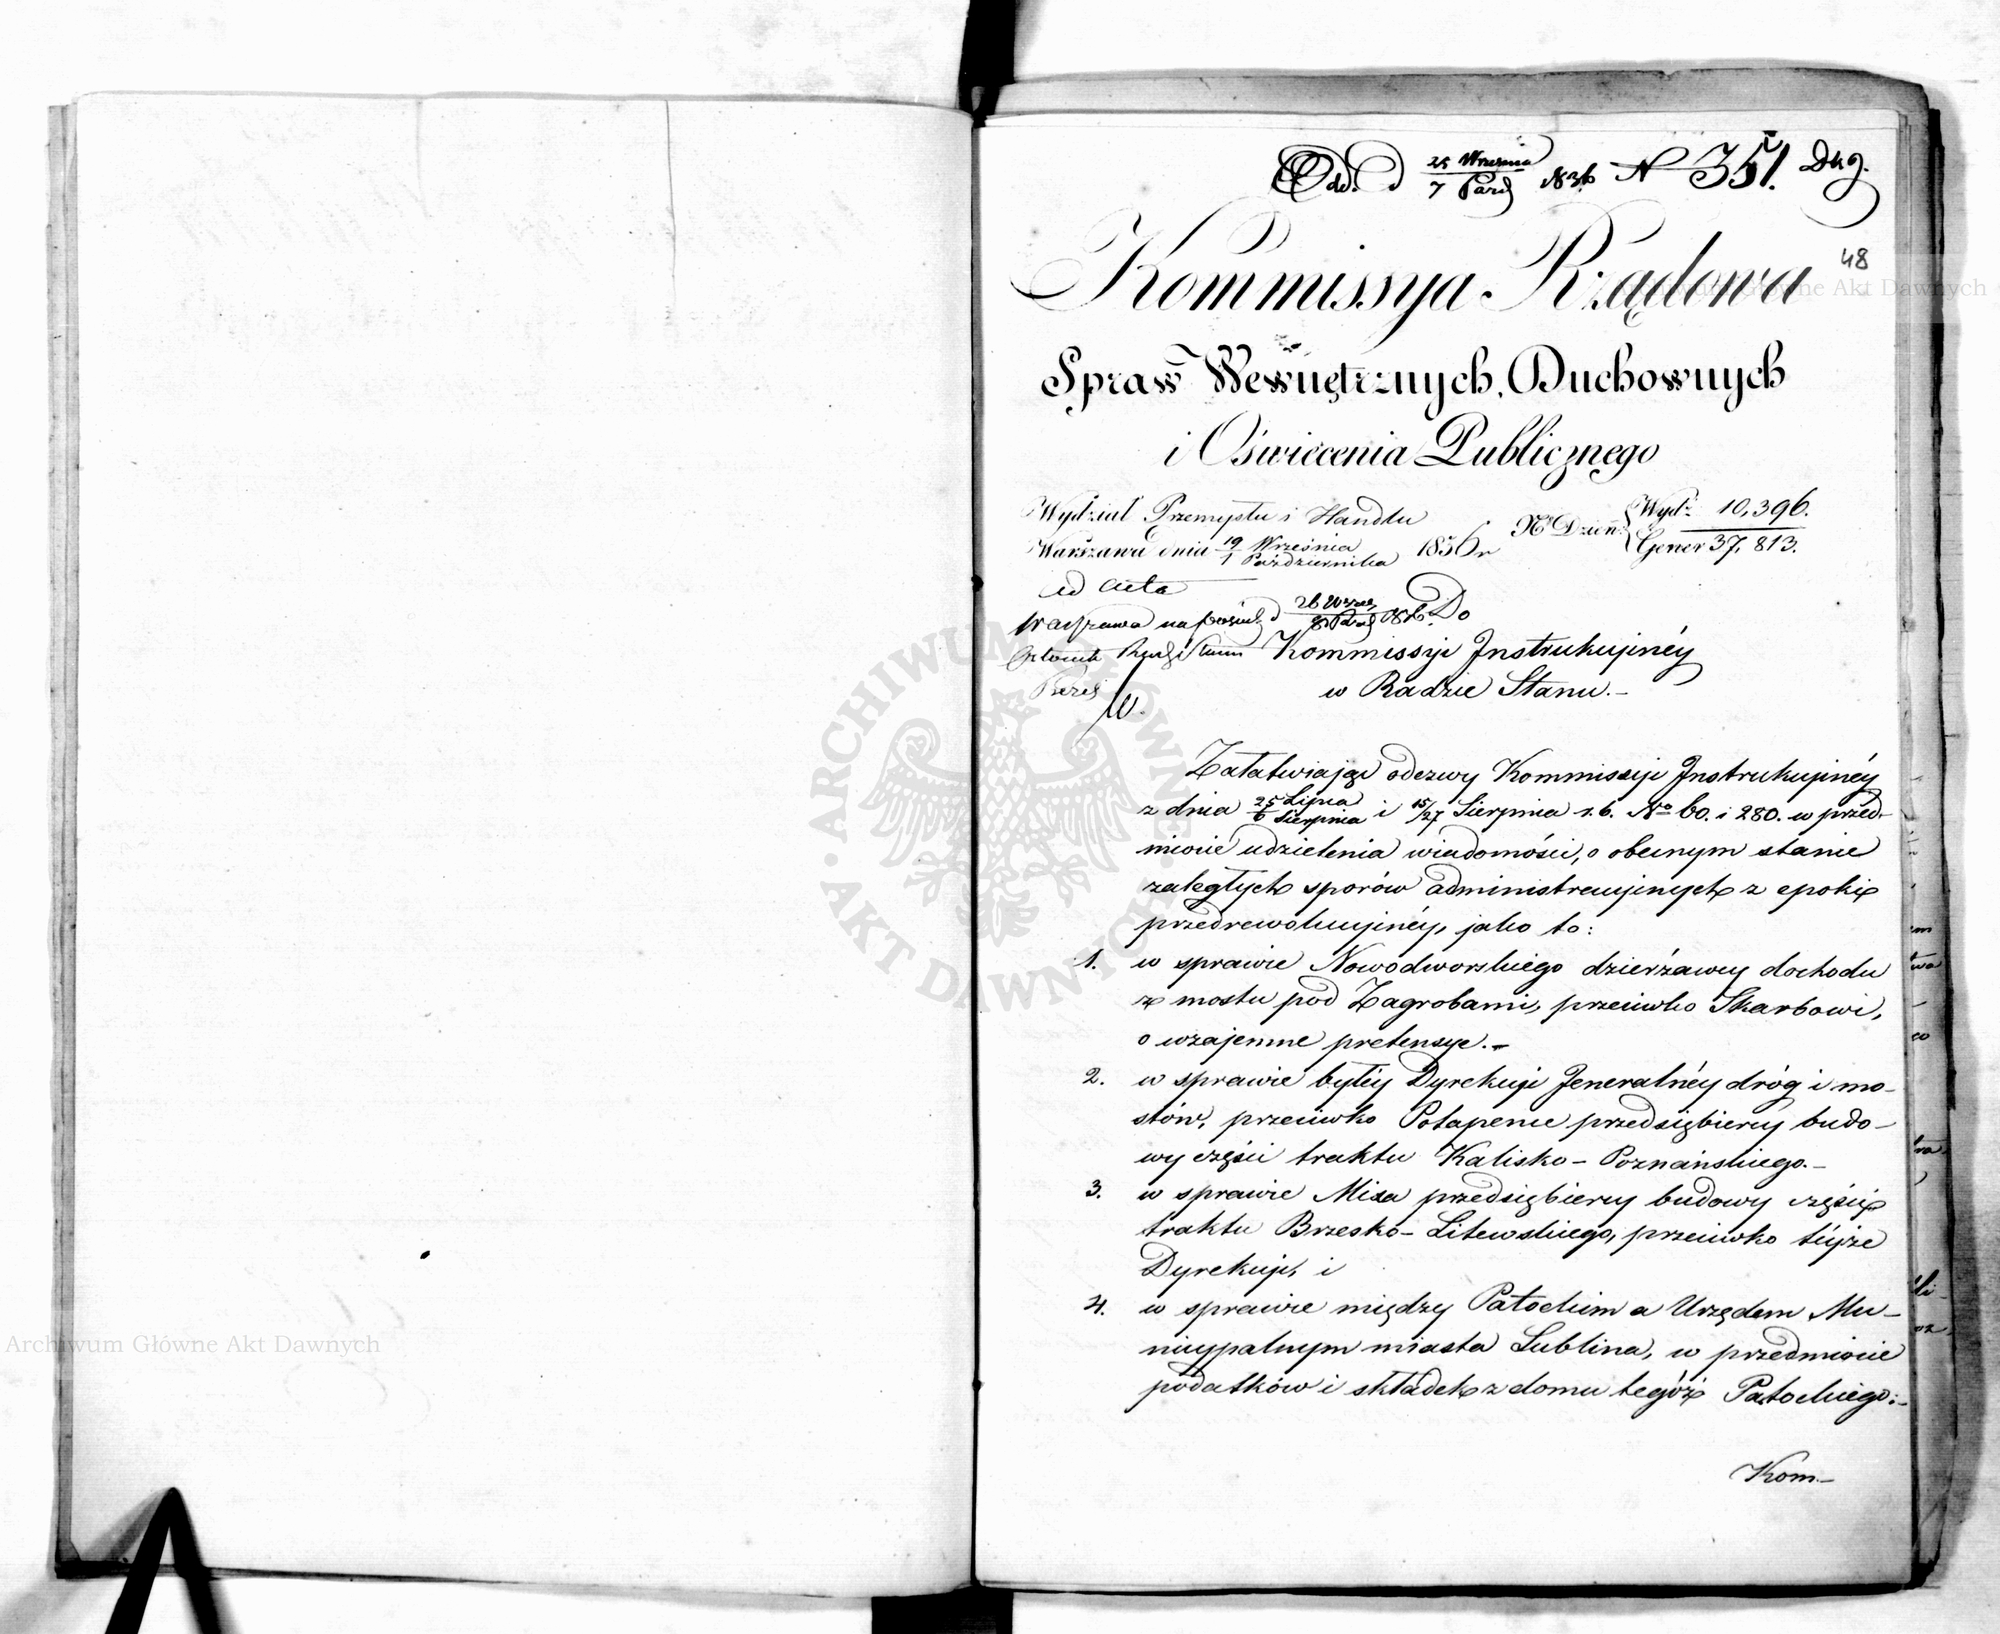 Odd. d 25 Września / 7 Paźd 1836 N 351. Dzg.
48
Kommissya Rządowa
Spraw Wewnętrznych, Duchownych
i Oświecenia Publicznego
Wydział Przemysłu i Handlu
Warszawa dnia 19 Września / 1 Października 1836 r
No Dzien: Wydz 10,396.
Gener 37,813.
ad acta
sprawa na posiedz d 26 Wrześ / 8 Paźd 1836.
Członek
Do
Kommissyi Instrukcyjnéy
w Radzie Stanu.-
Załatwiając odezwy Kommissyi Instrukcyjnéy
z dnia 25 Lipca / 6 Sierpnia i 15/27 Sierpnia r. b. No 60. i 280. w przed-
miocie udzielenia wiadomości, o obecnym stanie
zaległych sporów administracyjnych z epoki
przedrewolucyjnéy, jako to:
1. w sprawie Nowodworskiego dzierżawcy dochodu
z mostu pod Zagrobami, przeciwko Skarbowi,
o wzajemne pretensye.-
2. w sprawie byłéy Dyrekcyi Jeneralnéy dróg i mo-
stów, przeciwko Potapence przedsiębiercy budo-
wy części traktu Kalisko-Poznańskiego.-
3. w sprawie Misa przedsiębiercy budowy części
traktu Brzesko-Litewskiego, przeciwko téjże
Dyrekcyi, i
4. w sprawie między Patockim a Urzędem Mu-
nicypalnym miasta Lublina, w przedmiocie
podatków i składek z domu tegóż Patockiego:-
Kom-
Archiwum Główne Akt Dawnych
Archiwum Główne Akt Dawnych
ARCHIWUM GŁÓWNE AKT DAWNYCH